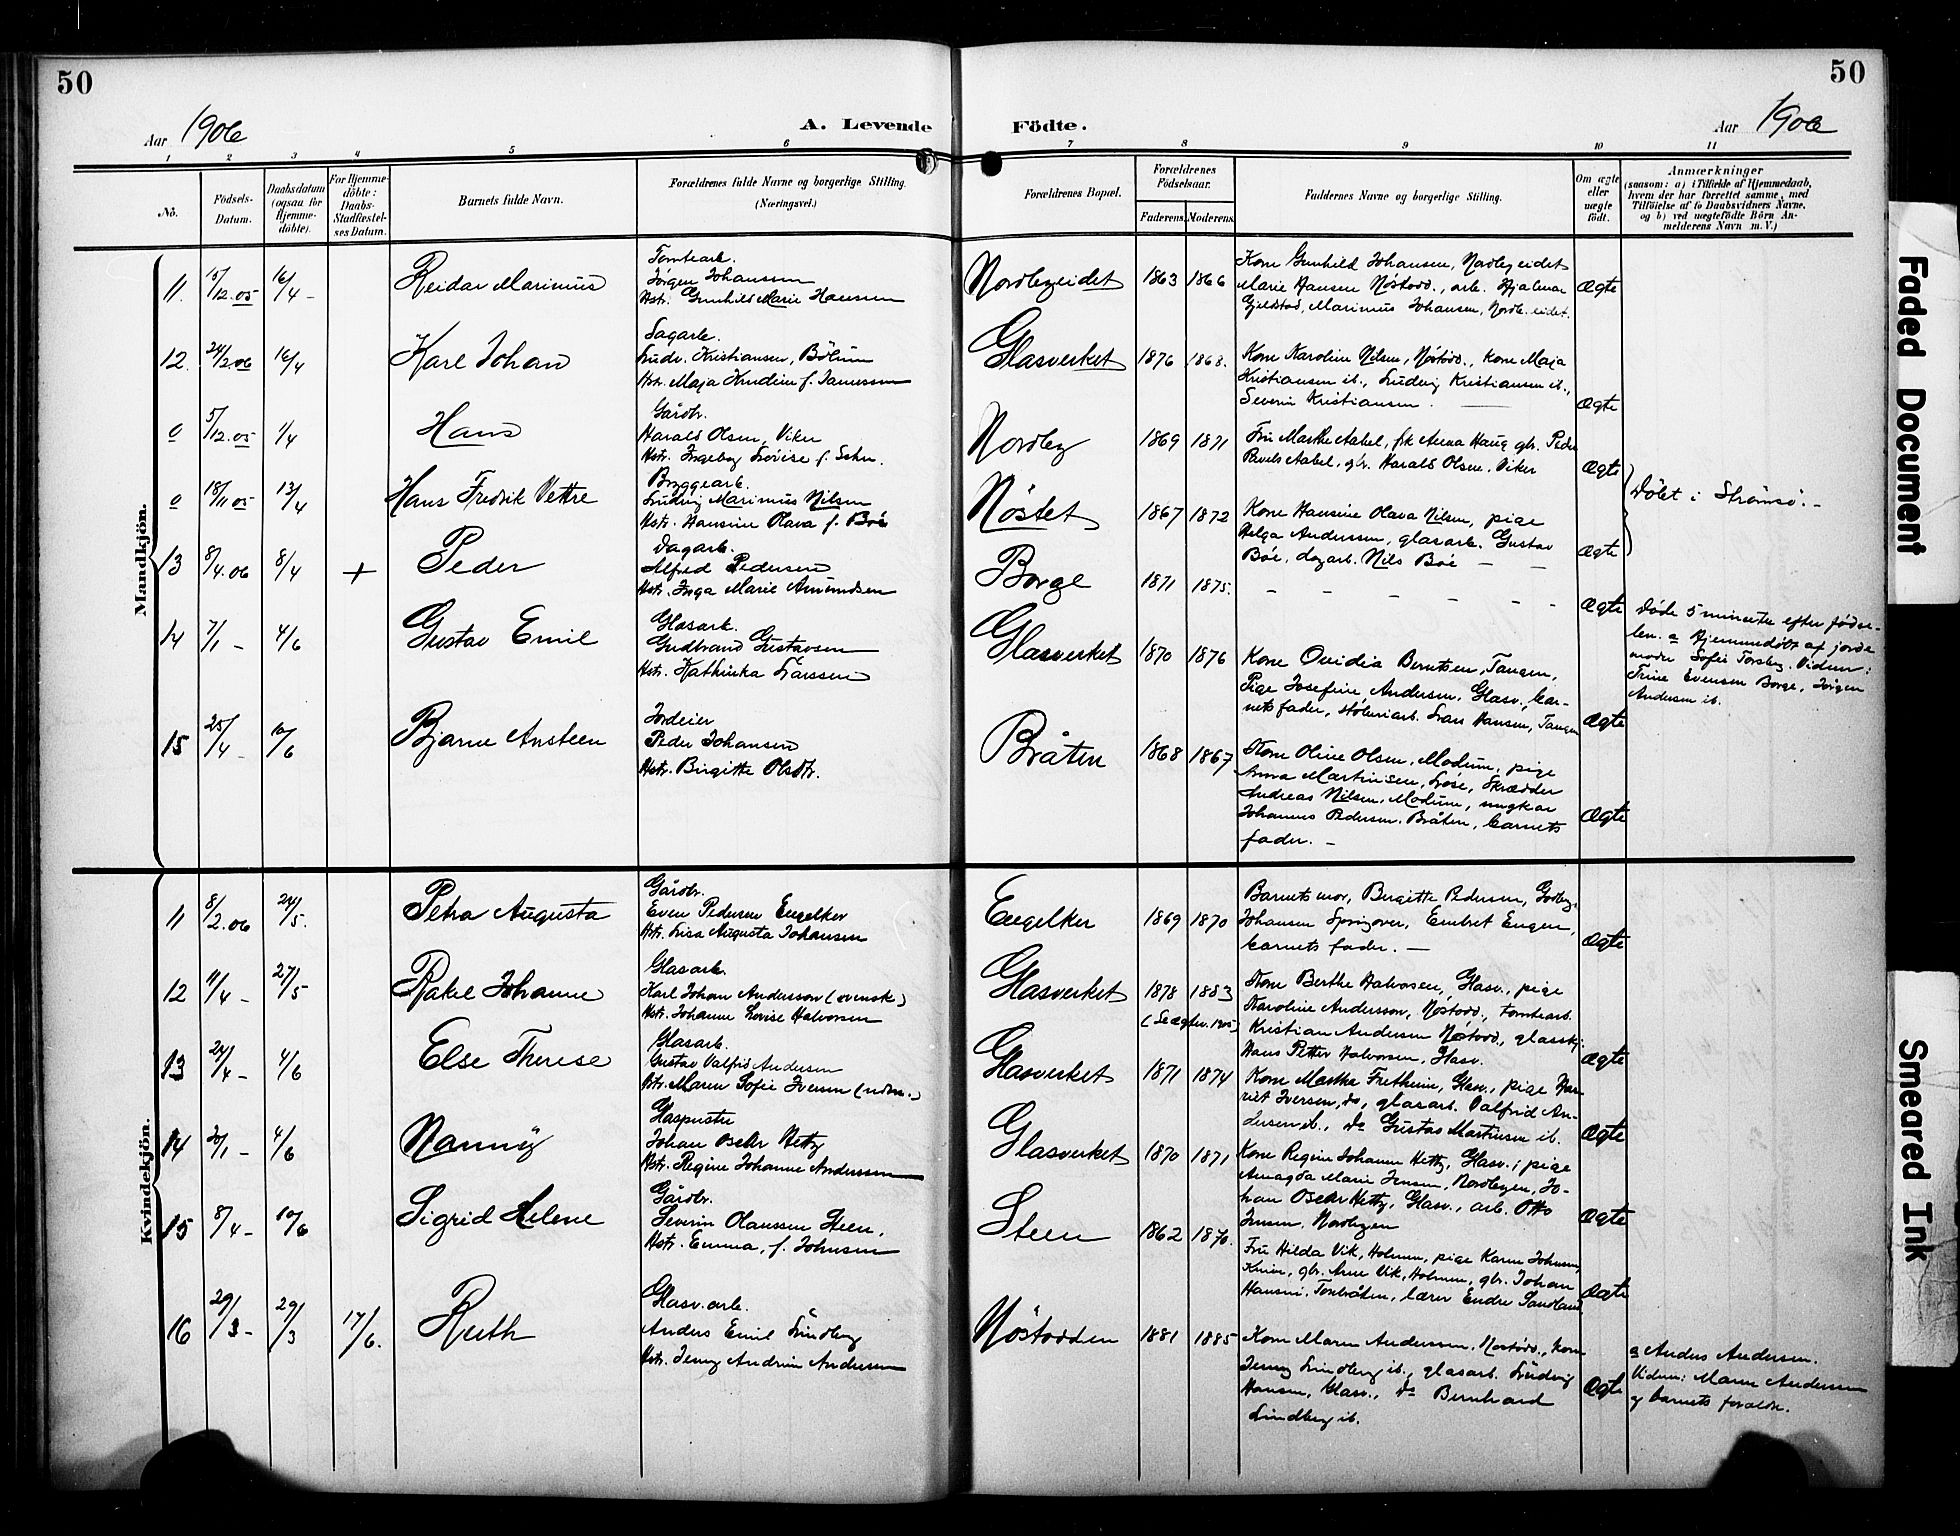 50
50
Aar 1906
A. Levende Födte.
Aar 1906
1 2 3 4 5 6 7 8 9 10 11
No.
Födsels-Datum.
Daabsdatum (ogsaa for Hjemme-döbte).
For Hjemme-döbte: Daabs-Stadfæstel-ses Datum.
Barnets fulde Navn.
Forældrenes fulde Navne og borgerlige Stilling.
(Næringsvei.)
Forældrenes Bopæl.
Forældrenes Födselsaar.
Faderens. Moderens.
Faddernes Navne og borgerlige Stilling.
Om ægte eller uægte födt.
Anmærkninger
(saasom: a) i Tilfælde af Hjemmedaab,
hvem der har forrettet samme, med
Tilföielse af to Daabsvidners Navne,
og b) ved uægtefödte Börn An-
melderens Navn m. V.)
Mandkjön.
11. 15/12.05 16/4 - Reidar Marinius
Tomtearb.
Jörgen Johansen
Hstr. Gunhild Marie Hansen
Nordbyeidet 1863 1866
Kone Gunhild Johansen, Nordbyeidet
Marie Hansen Nöstodd., arb. Hjalmar
Gjeldstad, Marinius Johansen, Nordb.eidet.
Ægte
12. 24/2.06 16/4 Karl Johan
Sagarb.
Ludv. Kristiansen, Bölum
Hstr. Maja Knudine f. Janussen
Glasverket 1876 1868.
Kone Karoline Nilsen, Nöstodd., kone Maja
Kristiansen ib., Ludvig Kristiansen ib.,
Severin Kristiansen.
Ægte
0 5/12.05 1/4 Hans
Gårdbr.
Harald Olsen, Viker
Hstr. Ingeborg Lovise f.
Nordby 1869 1871
Fru Marthe Aabel, frk Anna Haug, gbr. Peder
Aabel, gbr. Harald Olsen, Viker
Ægte
0 18/11 05 13/4 Hans Fredrik Vettre
Bryggearb.
Ludvig Marinius Nilsen
Hstr. Hansine Olava f. Böe
Nöstet 1867 1872
Kone Hansine Olava Nilsen, pige
Helga Andersen, glasarb. Gustav
Böe, dagarb. Nils Böe - -
Ægte
Döbt i Strömsö. -
13 8/4.06 8/4 + Peder
Dagarb.
Alfred Pedersen
Hstr. Inga Marie Amundsen
Borge 1871 1875.
- - - - - -
Ægte
Döde 5 minuter efter födse-
len. a Hjemmedöbt af jorde
moder Sofie Torsby. Vidner:
Trine Evensen Borge, Jörgen
Andersen ib.
14 7/1 - 4/6 Gustav Emil
Glasarb.
Gudbrand Gustavsen
Hstr. Kathinka Larssen
Glasverket 1870 1876
Kone Ovidia Berntsen, Tangen,
Pige Josefine Andersen, Glasv., bar-
nets fader, stöberiarb. Lars Hansen, Tangen
Ægte
15 25/4 - 10/6 Bjarne Ansteen
Jordeier
Peder Johansen
Hstr. Birgitte Olsdtr.
Bråten 1868 1867
Kone Oline Olsen, Modum, pige
Anna Martinsen, Löse, Skrædder
Andreas Nilsen, Modum, ungkar
Johannes Pedersen, Bråten, barnets
fader. -
Ægte
Kvindekjön.
11 8/2.06 24/5. Petra Augusta
Gårdbr.
Even Pedersen Engelker
Hstr. Lisa Augusta Johansen
Engelker 1869 1870
Barnets mor, Birgitte Pedersen,
Johansen Springover, Embret Engen,
barnets fader. -
Ægte
12 11/4 - 27/5 Rakel Johanne
Glasarb.
Karl Johan Andersson (svensk)
Hstr. Johanne Lovise Halvorsen
Glasverket 1878 1883
Kone Berthe Halvorsen, Glasv., pige
Karoline Andersson, Nöstodd., tomtearb.
Kristian Andersen Nöstodd, glasskj.
Hans Petter Halvorsen, Glasv.
Ægte
13 24/4 - 4/6 Else Therese
Glasarb.
Gustav Valfrid Andersen
Hstr. Maren Sofie Iversen
Glasverket 1871 1874
Kone Marthe Fretheim, Glasv., pige Har-
riet Iversen, do, glasarb. Valfrid An-
dersen ib., do Gustav Martinsen ib.
Ægte
14 20/1 - 4/6 Nanny
Glaspuster
Johan Oscar Hetty
Hstr. Regine Johanne Anderssen
Glasverket 1870 1871
Kone Regine Johanne Hetty, Glasv., pige
Amagda Marie Jensen, Nordbyen, Jo-
han Oscar Hetty, Glasv., arb. Otto
Jensen, Nordbyen
Ægte
15 8/4 - 10/6 Sigrid Helene
Gårdbr.
Severin Olaussen Steen,
Hstr. Emma, f. Johnsen
Steen 1862 1870.
Fru Hilda Vik, Holmen, pige Karen Johnsen,
gbr. Arne Vik, Holmen, gbr. Johan
Hansen, Tonbråten, lærer Endre Sandland
Ægte
16 29/3 - 29/3 17/6. Ruth
Glasv.arb.
Anders Emil Lindberg
Hstr. Jenny Andrine Andersen
Nöstodden 1881 1885
Kone Maren Anderssen, Nöstodd., kone
Jenny Lindberg ib., glasarb. Ludvig
Hansen, Glasv., do Bernhard
Lindberg ib.
Ægte
a Anders Andersen.
Vidner: Maren Andersen
og barnets foreldre.
Faded Document
Smeared Ink